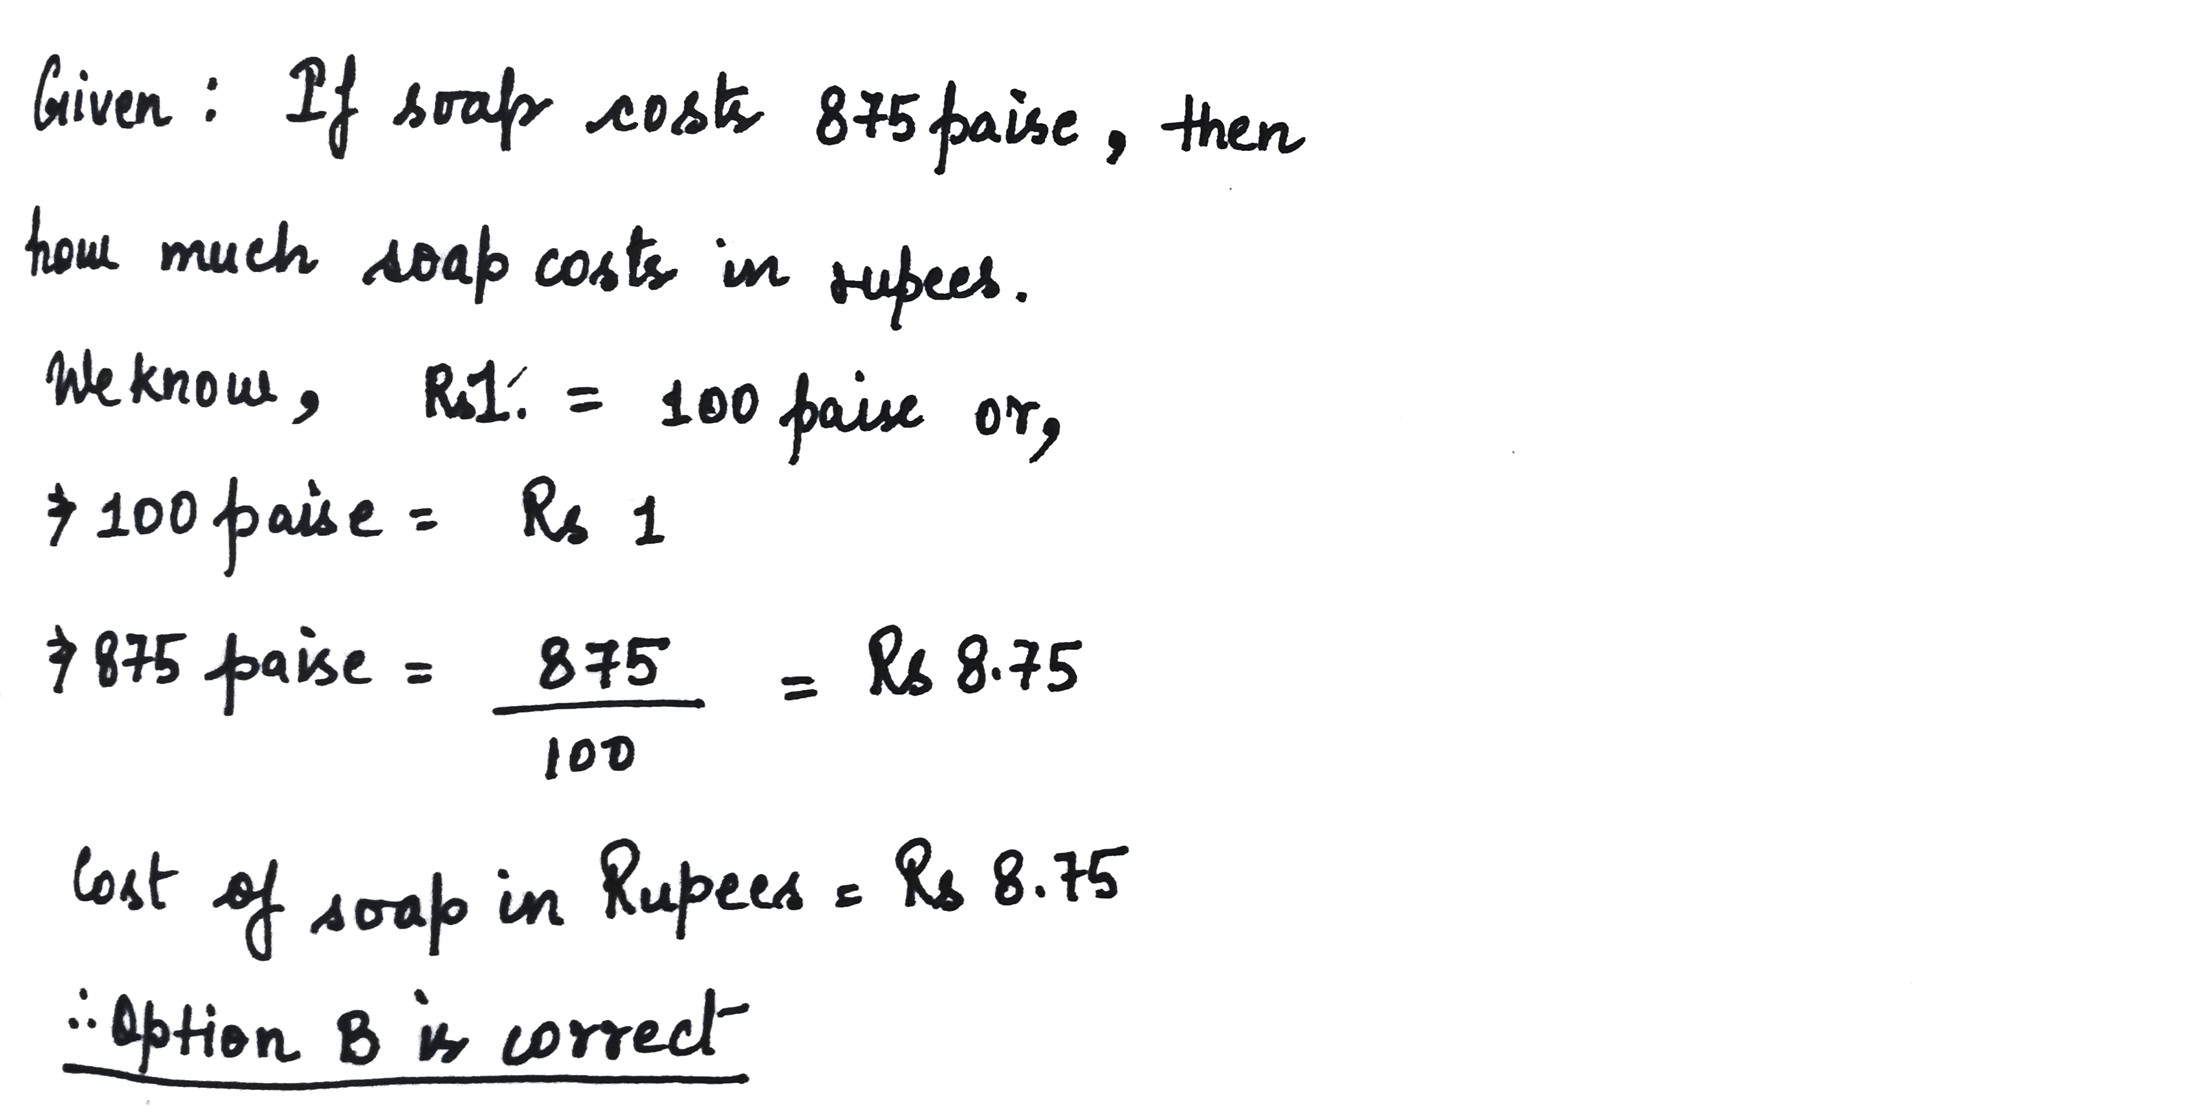 Given : If soap costs 875 paise, then
how much soap costs in rupees.
We know, Rs1. = 100 paise or,
⇒ 100 paise = Rs 1
⇒ 875 paise = 875/100 = Rs 8.75
Cost of soap in Rupees = Rs 8.75
∴ Option B is correct